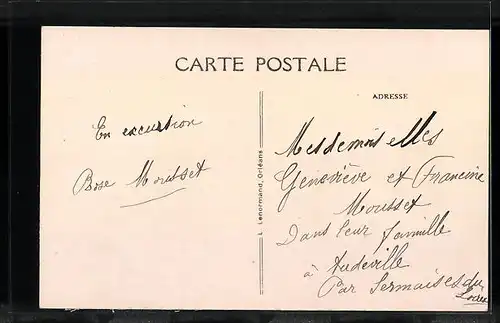 CARTE POSTALE
ADRESSE
En excursion
Rose Mousset
L. Lenormand, Orléans
Mesdemoiselles
Geneviève et Francine
Mousset
Dans leur famille
à Audeville
Par Sermaises du
Loiret